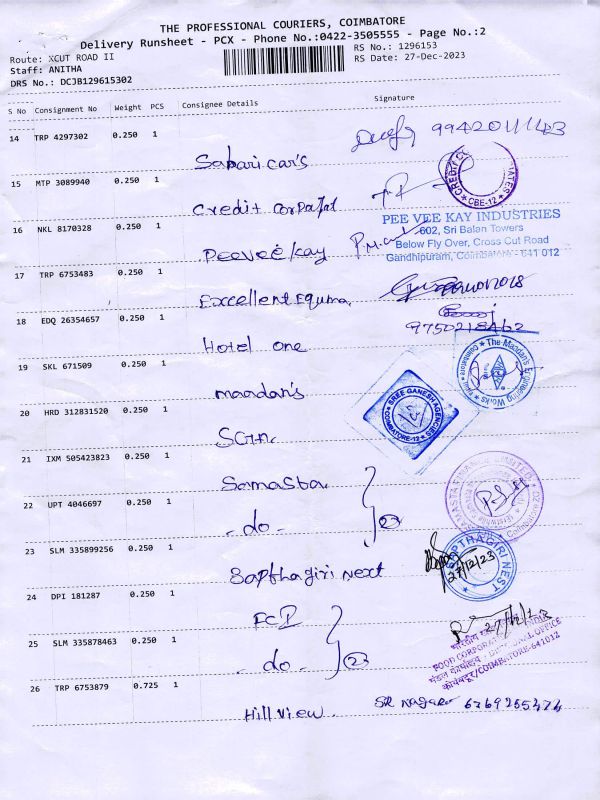 THE PROFESSIONAL COURIERS, COIMBATORE
Delivery Runsheet - PCX - Phone No.:0422-3505555 - Page No.:2
Route: XCUT ROAD II
Staff: ANITHA
DRS No.: DCJB129615302
RS No.: 1296153
RS Date: 27-Dec-2023
S No Consignment No Weight PCS Consignee Details Signature
14 TRP 4297302 0.250 1
Sabari car's
15 MTP 3089940 0.250 1
Credit
CBE-12
16 NKL 8170328 0.250 1
Peevee kay
PEE VEE KAY INDUSTRIES
602, Sri Balan Towers
Below Fly Over, Cross Cut Road
Gandhipuram, Coimbatore - 641 012
17 TRP 6753483 0.250 1
Excellent
18 EDQ 26354657 0.250 1
9750218462
Hotel one
19 SKL 671509 0.250 1
maadan's
The Maadan's Engineering Works
20 HRD 312831520 0.250 1
SREE GANESH AGENCIES
COIMBATORE-12
21 IXM 505423823 0.250 1
Samasta
22 UPT 4046697 0.250 1
-do-
23 SLM 335899256 0.250 1
Sapthagiri Next
SAPTHAGIRI NEST
27/12/23
24 DPI 181287 0.250 1
FCI
25 SLM 335878463 0.250 1
-do-
FOOD CORPORATION OF INDIA
DIVISIONAL OFFICE
कोयंबटूर/COIMBATORE-641012
26 TRP 6753879 0.725 1
Hill view